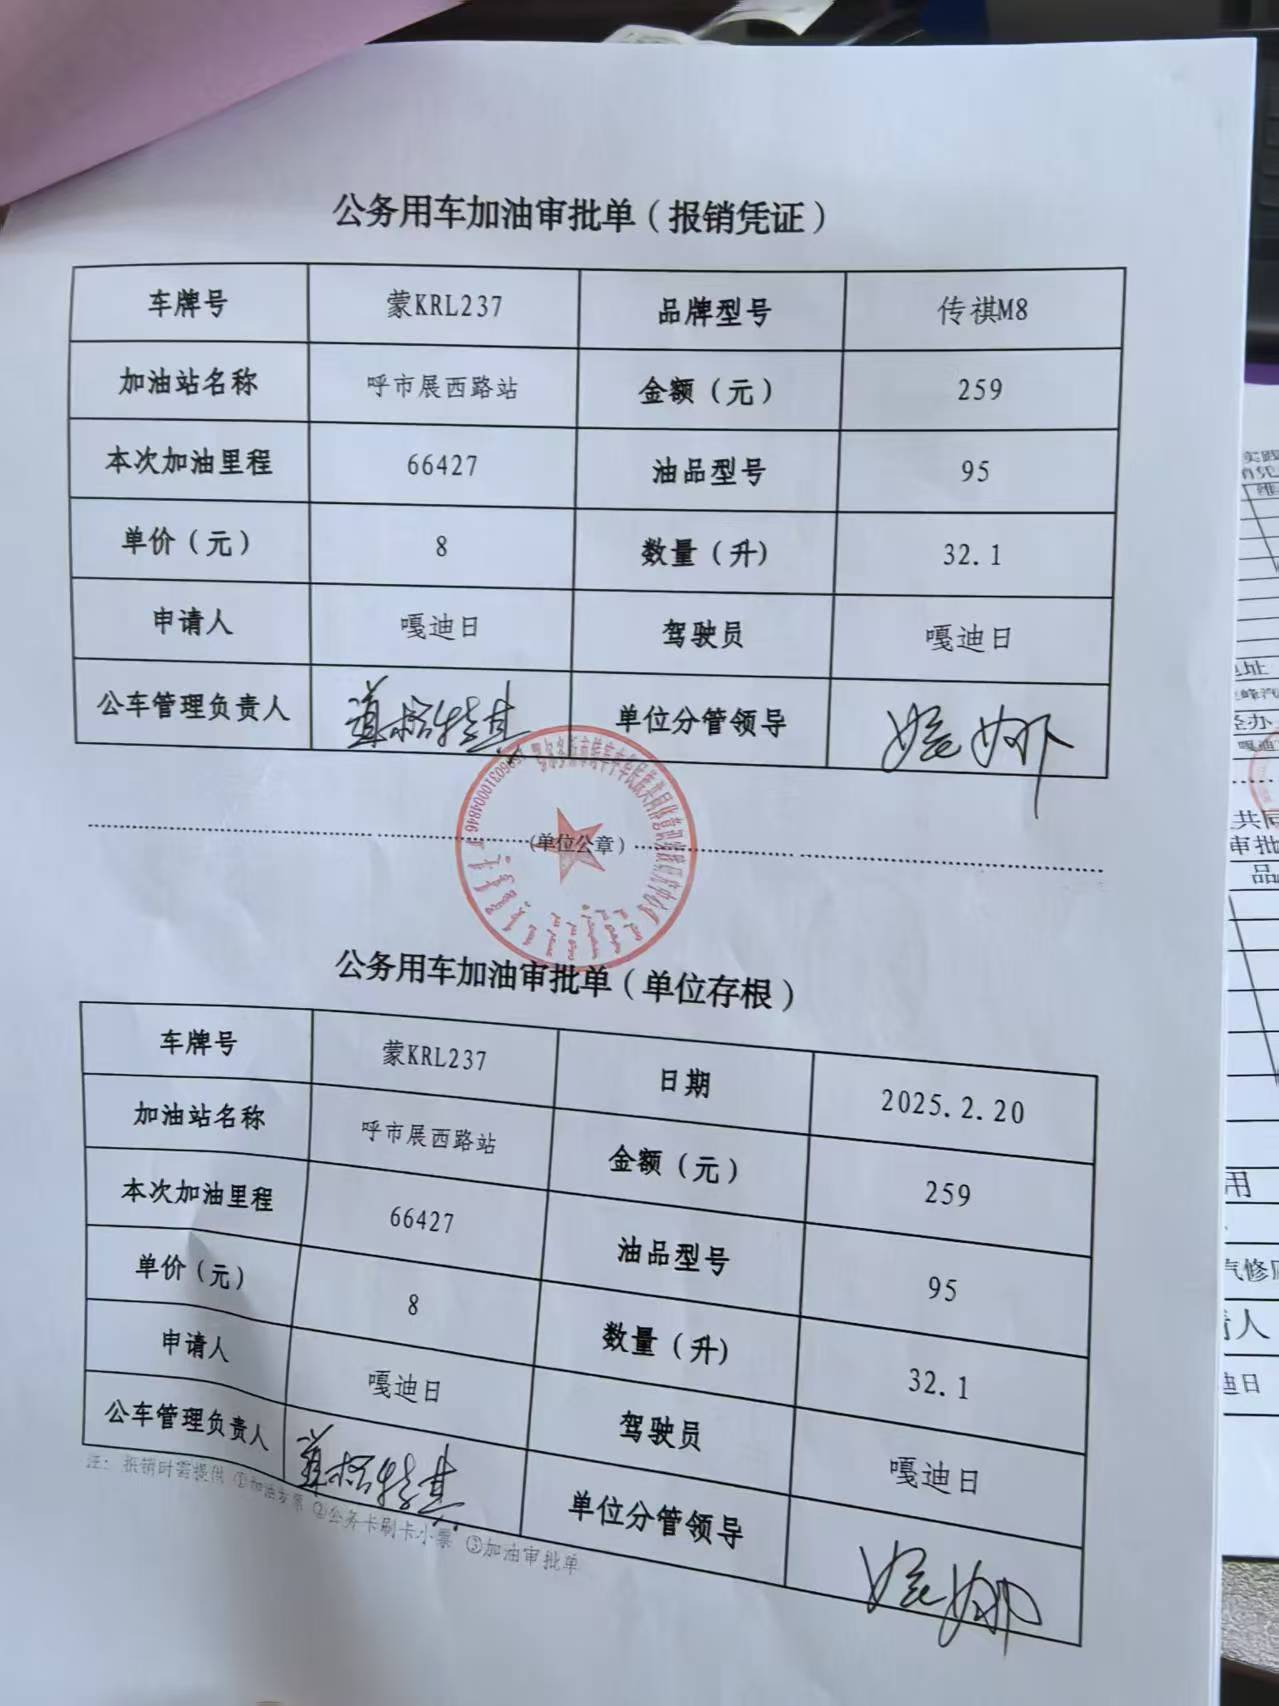 公务用车加油审批单（报销凭证）
车牌号 蒙KRL237 品牌型号 传祺M8
加油站名称 呼市展西路站 金额（元） 259
本次加油里程 66427 油品型号 95
单价（元） 8 数量（升） 32.1
申请人 嘎迪日 驾驶员 嘎迪日
公车管理负责人 单位分管领导 娜
15060310004846
（单位公章）
公务用车加油审批单（单位存根）
车牌号 蒙KRL237 日期 2025.2.20
加油站名称 呼市展西路站 金额（元） 259
本次加油里程 66427 油品型号 95
单价（元） 8 数量（升） 32.1
申请人 嘎迪日 驾驶员 嘎迪日
公车管理负责人 单位分管领导 娜
注：报销时需提供 ①加油发票 ②公务卡刷卡小票 ③加油审批单